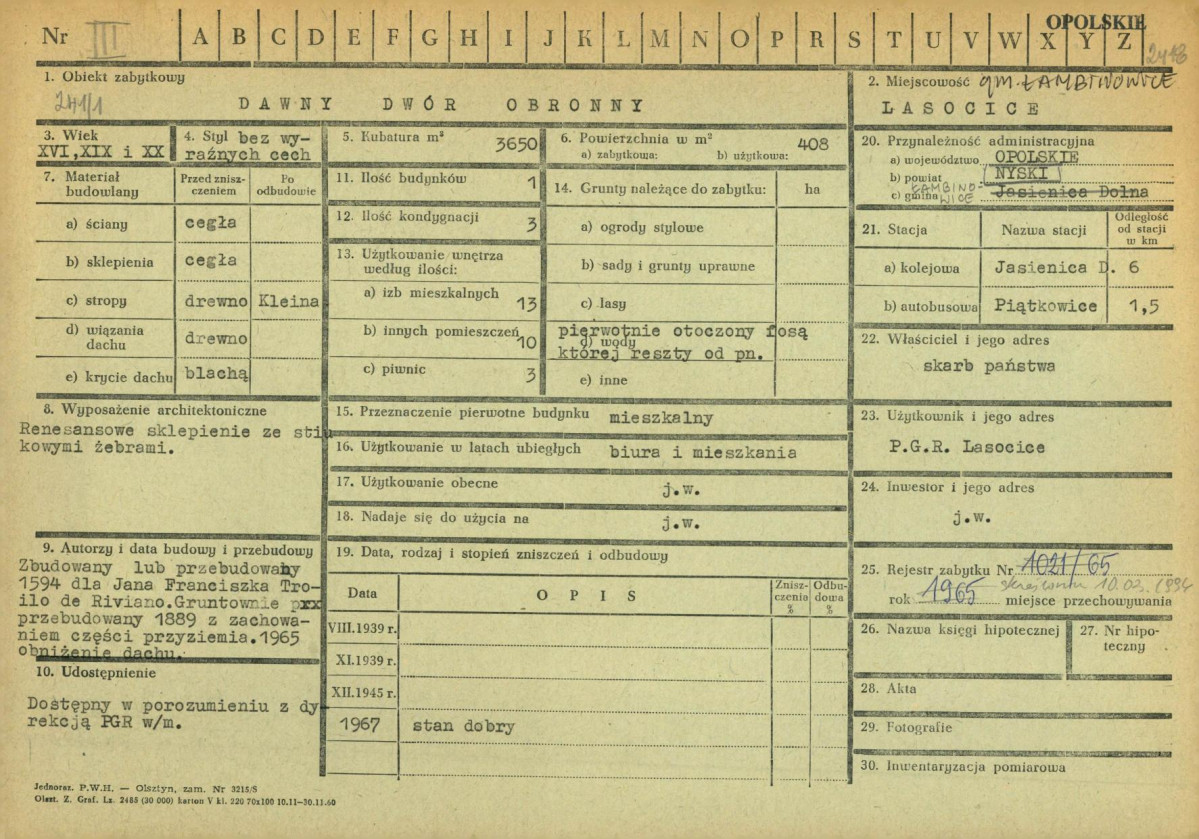 Nr III A B C D E F G H I J K L M N O P R S T U V W X Y Z
OPOLSKIE
1. Obiekt zabytkowy
241/1
DAWNY DWÓR OBRONNY
2. Miejscowość gm. ŁAMBINOWICE
LASOCICE
3. Wiek
XVI,XIX i XX
4. Styl bez wy-
raźnych cech
5. Kubatura m³ 3650
6. Powierzchnia w m² 408
a) zabytkowa: b) użytkowa:
7. Materiał
budowlany
Przed znisz-
czeniem
Po
odbudowie
a) ściany cegła
b) sklepienia cegła
c) stropy drewno Kleina
d) wiązania
dachu drewno
e) krycie dachu blachą
8. Wyposażenie architektoniczne
Renesansowe sklepienie ze stiu
kowymi żebrami.
9. Autorzy i data budowy i przebudowy
Zbudowany lub przebudowany
1594 dla Jana Franciszka Tro-
ilo de Riviano.Gruntownie prx
przebudowany 1889 z zachowa-
niem części przyziemia.1965
obniżenie dachu.
10. Udostępnienie
Dostępny w porozumieniu z dy
rekcją PGR w/m.
11. Ilość budynków 1
12. Ilość kondygnacji 3
13. Użytkowanie wnętrza
według ilości:
a) izb mieszkalnych 13
b) innych pomieszczeń 10
c) piwnic 3
14. Grunty należące do zabytku: ha
a) ogrody stylowe
b) sady i grunty uprawne
c) lasy
pierwotnie otoczony fosą
d) wody
której reszty od pn.
e) inne
15. Przeznaczenie pierwotne budynku mieszkalny
16. Użytkowanie w latach ubiegłych biura i mieszkania
17. Użytkowanie obecne j.w.
18. Nadaje się do użycia na j.w.
19. Data, rodzaj i stopień zniszczeń i odbudowy
Data OPIS Znisz-
czenia
% Odbu-
dowa
%
VIII.1939 r.
XI.1939 r.
XII.1945 r.
1967 stan dobry
20. Przynależność administracyjna
a) województwo OPOLSKIE
b) powiat NYSKI
c) gmina ŁAMBINO-
WICE Jasienica Dolna
21. Stacja Nazwa stacji Odległość
od stacji
w km
a) kolejowa Jasienica D. 6
b) autobusowa Piątkowice 1,5
22. Właściciel i jego adres
skarb państwa
23. Użytkownik i jego adres
P.G.R. Lasocice
24. Inwestor i jego adres
j.w.
25. Rejestr zabytku Nr 1021/65
rok 1965 miejsce przechowywania
26. Nazwa księgi hipotecznej
27. Nr hipo-
teczny
28. Akta
29. Fotografie
30. Inwentaryzacja pomiarowa
Jednoraz. P.W.H. — Olsztyn, zam. Nr 3215/S
Olszt. Z. Graf. Lz. 2485 (30 000) karton V kl. 220 70x100 10.11—30.11.60